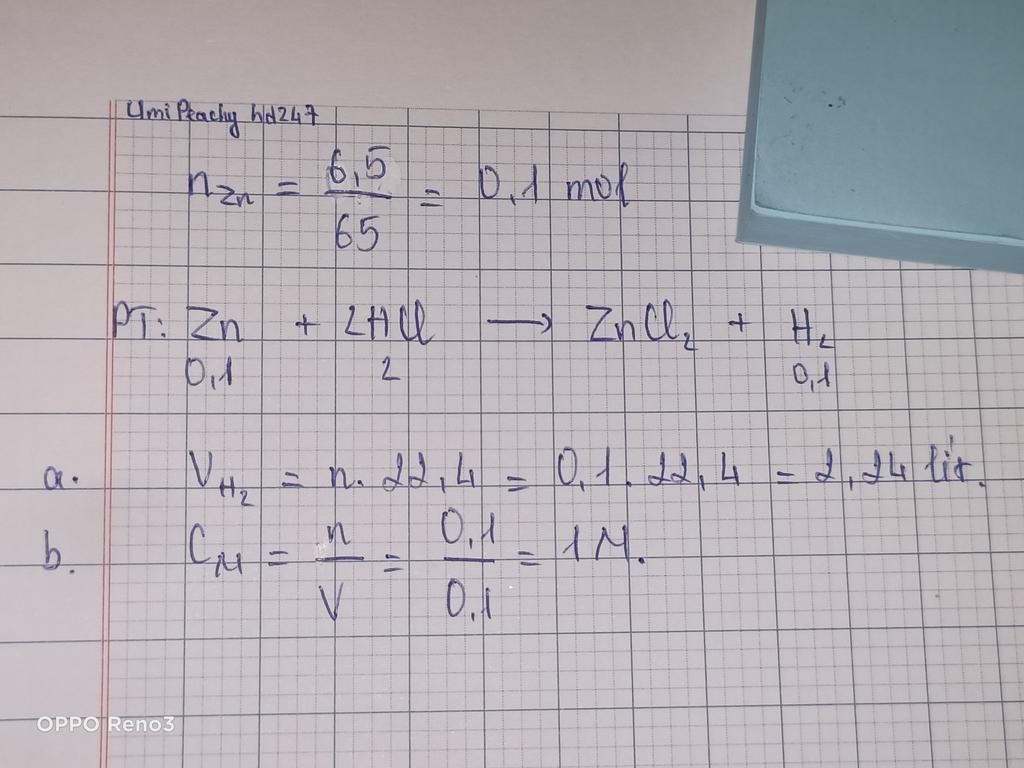 UmiPeachy hd247
n_Zn = 6,5/65 = 0,1 mol
PT: Zn + 2HCl → ZnCl₂ + H₂
0,1 2 0,1
a. V_H₂ = n. 22,4 = 0,1. 22,4 = 2,24 lít.
b. C_M = n/V = 0,1/0,1 = 1M.
OPPO Reno3